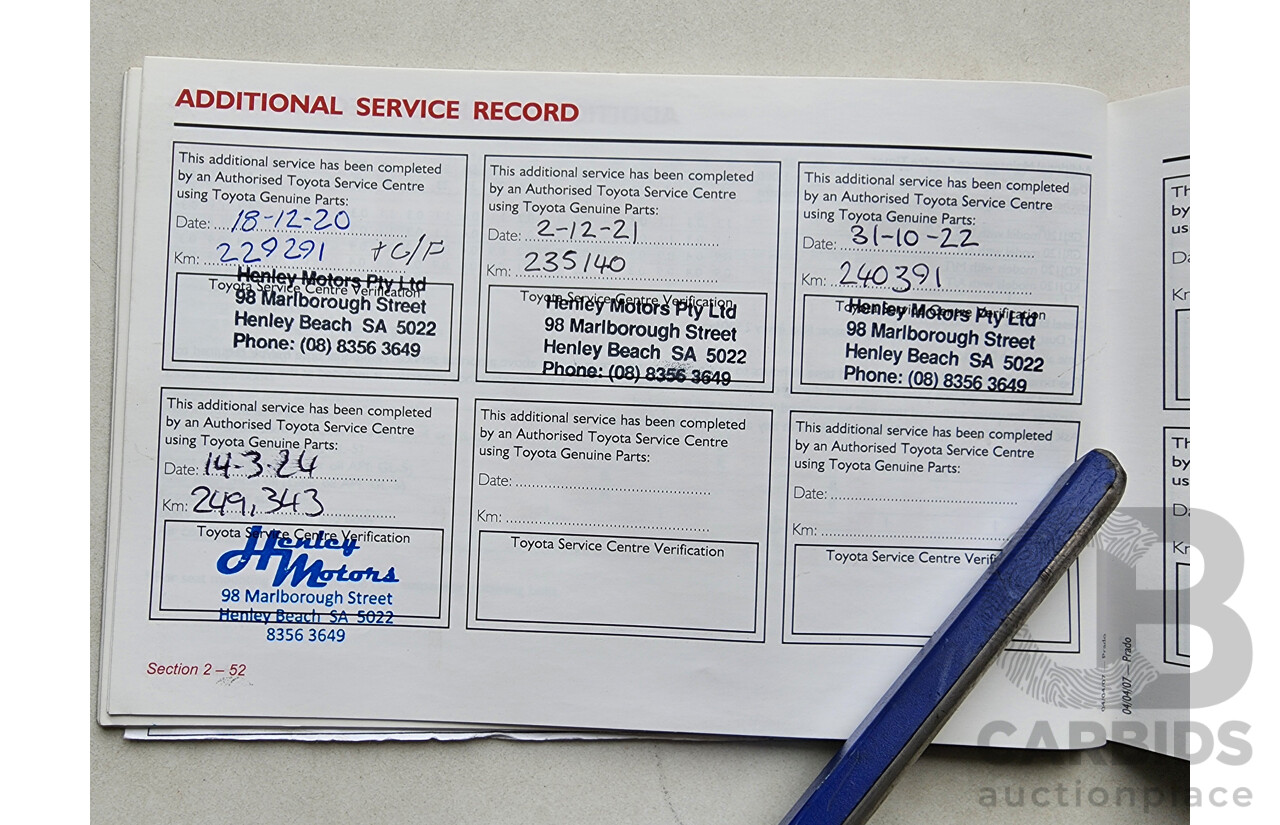 ADDITIONAL SERVICE RECORD
This additional service has been completed
by an Authorised Toyota Service Centre
using Toyota Genuine Parts:
Date: 18-12-20
Km: 229291 + G/F
Toyota Service Centre Verification
Henley Motors Pty Ltd
98 Marlborough Street
Henley Beach SA 5022
Phone: (08) 8356 3649
This additional service has been completed
by an Authorised Toyota Service Centre
using Toyota Genuine Parts:
Date: 2-12-21
Km: 235140
Toyota Service Centre Verification
Henley Motors Pty Ltd
98 Marlborough Street
Henley Beach SA 5022
Phone: (08) 8356 3649
This additional service has been completed
by an Authorised Toyota Service Centre
using Toyota Genuine Parts:
Date: 31-10-22
Km: 240391
Toyota Service Centre Verification
Henley Motors Pty Ltd
98 Marlborough Street
Henley Beach SA 5022
Phone: (08) 8356 3649
This additional service has been completed
by an Authorised Toyota Service Centre
using Toyota Genuine Parts:
Date: 14-3-24
Km: 249,343
Toyota Service Centre Verification
Henley
Motors
98 Marlborough Street
Henley Beach SA 5022
8356 3649
This additional service has been completed
by an Authorised Toyota Service Centre
using Toyota Genuine Parts:
Date:
Km:
Toyota Service Centre Verification
This additional service has been completed
by an Authorised Toyota Service Centre
using Toyota Genuine Parts:
Date:
Km:
Toyota Service Centre Verifi
Section 2 – 52
04/04/07 — Prado
CARBIDS
auctionplace